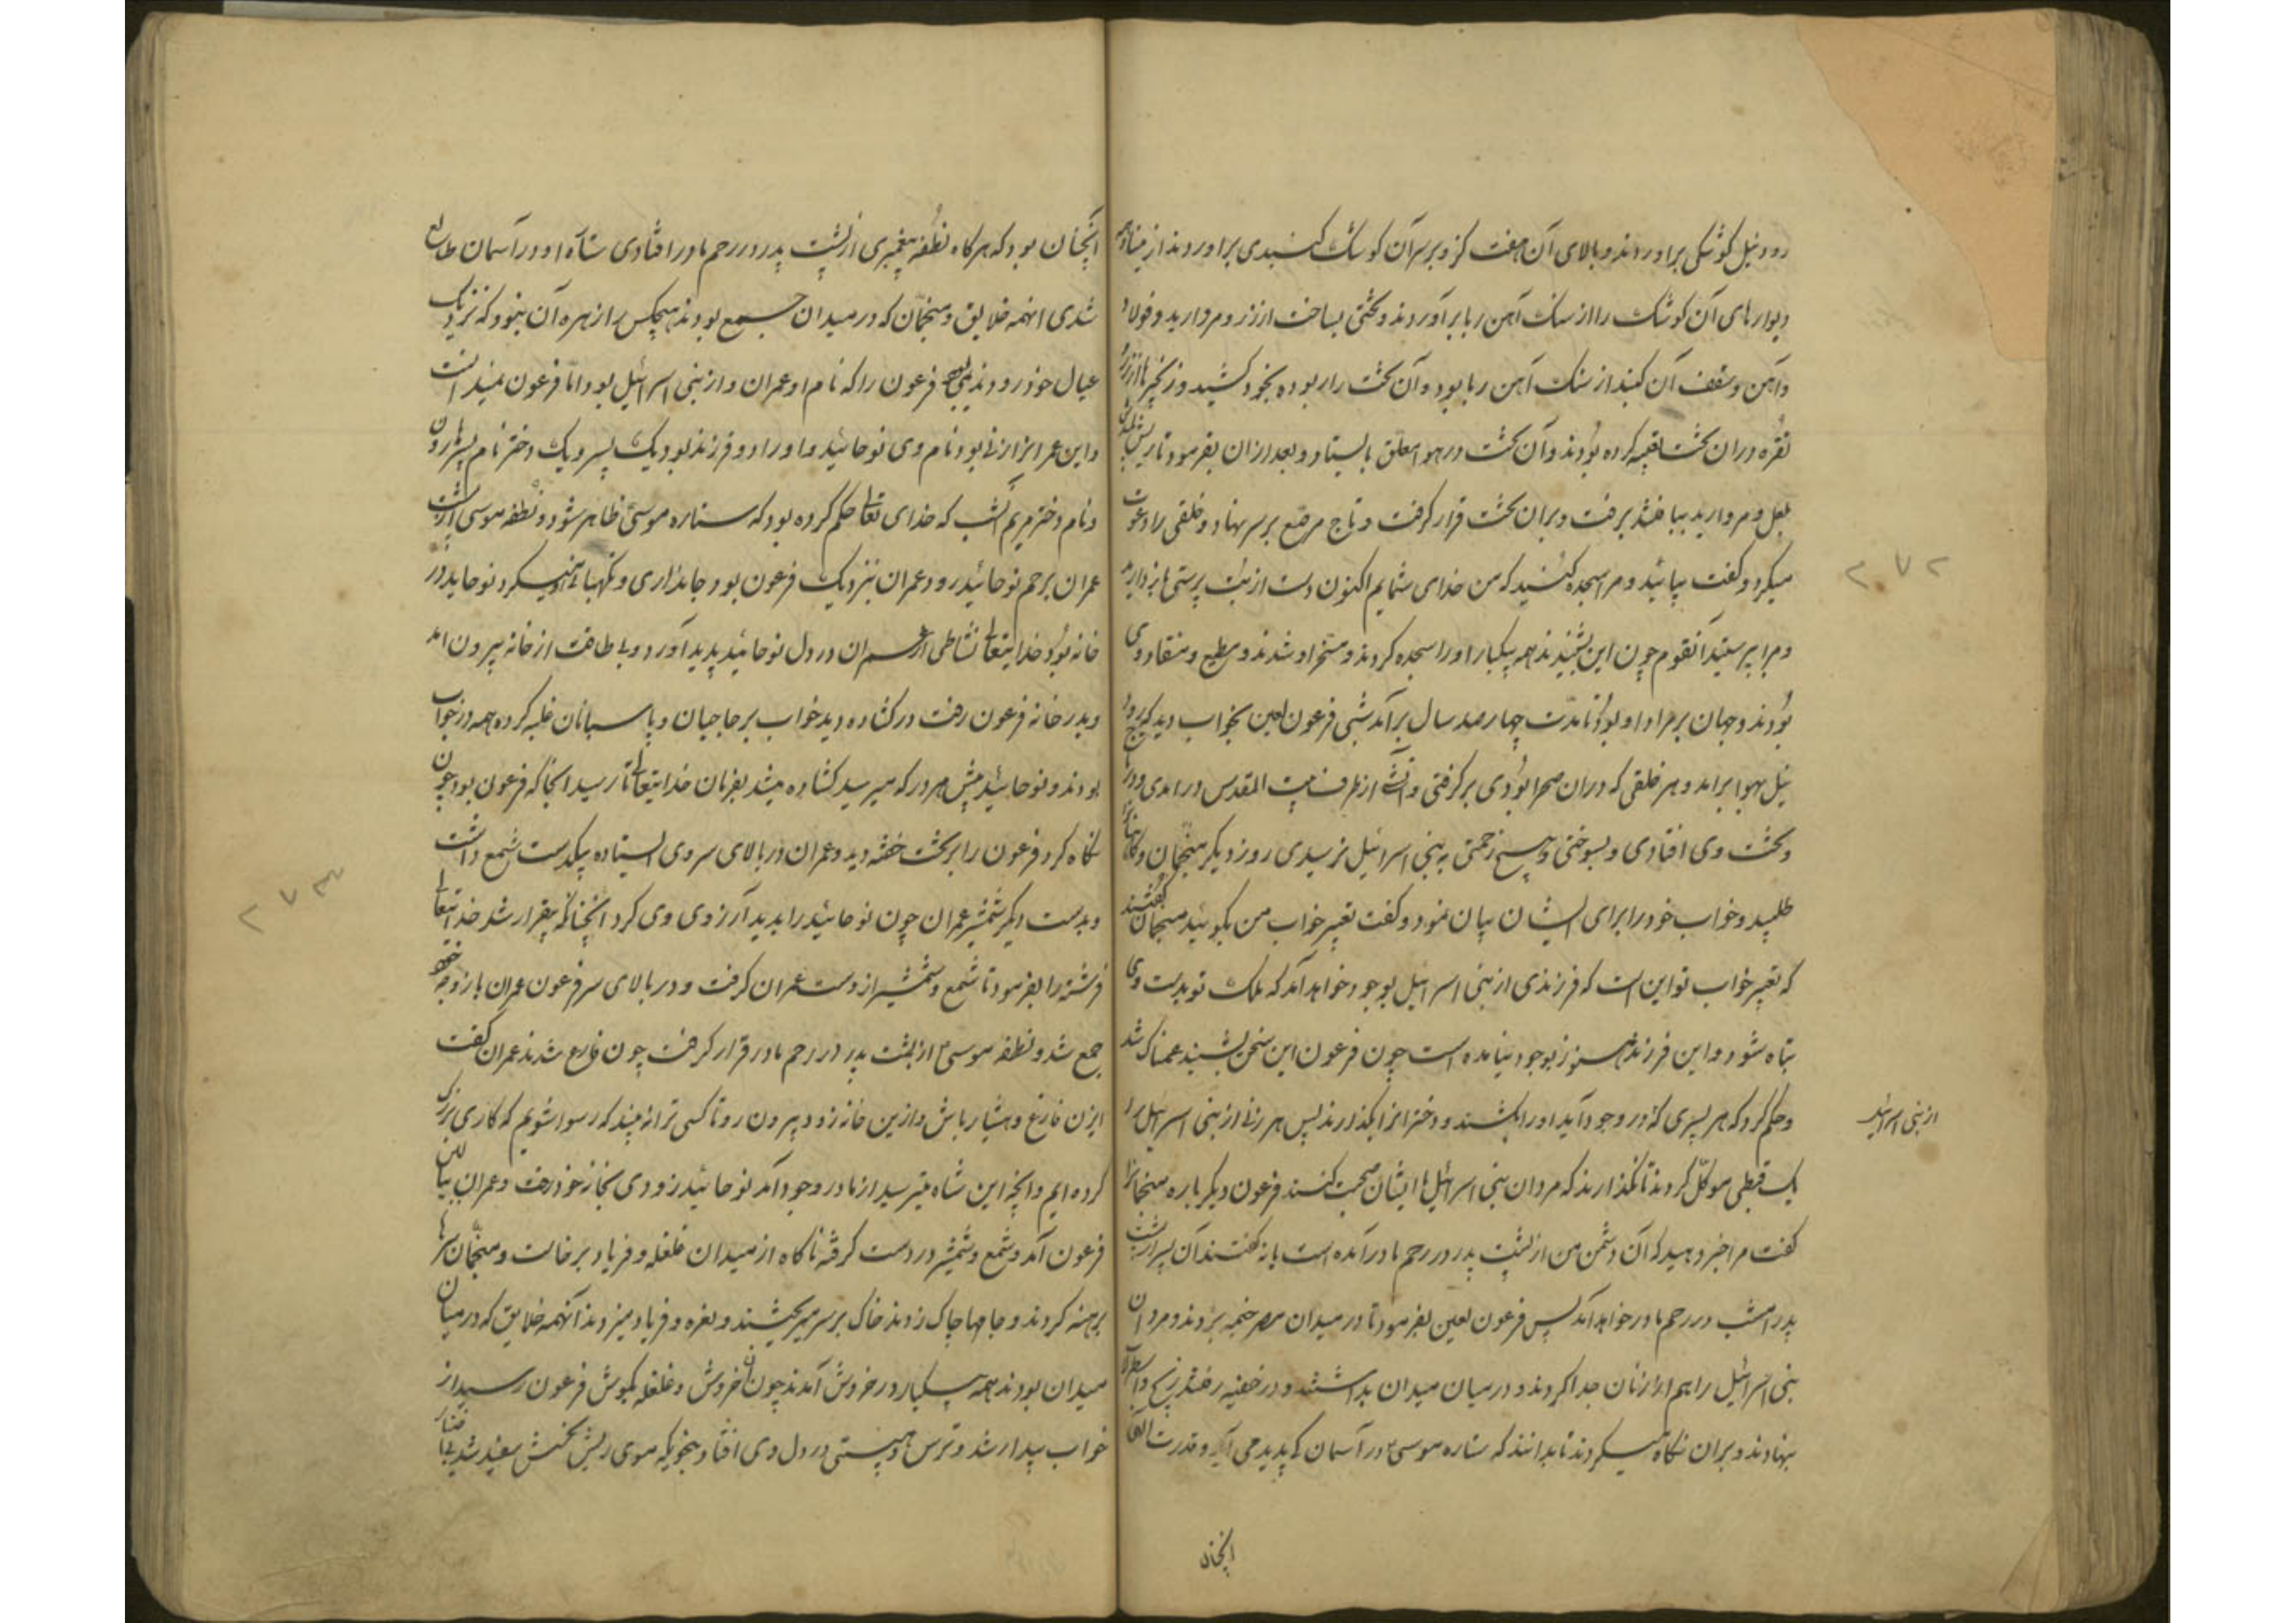 رود نیل کوشکی براوردند و بالای آن هفت کز و بر سر آن کوشک کنبدی براوردند از مینا و همه
دیوارهای آن کوشک را از سنک آهن ربا برآوردند و تختی بساخت از زر و مروارید و فولاد
و آهن و سقف آن کنبد از سنک آهن ربا بود و آن تخت را ربوده بخود کشید و زنجیرها از زر و
نقره دران تخت تعبیه کرده بودند و آن تخت در هوا معلق بایستاد و بعد ازان بفرمود تا ریش
لعل و مروارید ببافتند برفت و بران تخت قرار کرفت و تاج مرصع بر سر نهاد و خلقی را دعوت
میکرد و کفت بیائید و مرا سجده کنید که من خدای شمایم اکنون دست از بت پرستی بازدارید
و مرا پرستید آنقوم چون این بشنیدند همه بیکبار او را سجده کردند و مسخر او شدند و مطیع و منقاد وی
بودند و جهان بر مراد او بود تا مدت چهار صد سال برآمد شبی فرعون لعین بخواب دید که رود
نیل بهوا برامد و هر خلقی که دران صحرا بودی برکرفتی و آتش از طرف بیت المقدس درامدی و در
و تخت وی افتادی و بسوختی و هیچ زحمتی به بنی اسرائیل نرسیدی روز دیکر منجمان و کاهنانرا
طلبید و خواب خود را برای ایشان بیان نمود و کفت تعبیر خواب من بکوئید منجمان کفتند
که تعبیر خواب تو این است که فرزندی از بنی اسرائیل بوجود خواهد آمد که ملک تو بدست وی
تباه شود و این فرزند هنوز بوجود نیامده است چون فرعون این سخن بشنید غمناک شد
و حکم کرد که هر پسری که در وجود آید او را بکشند و دخترانرا بکذارند پس هر زنی از بنی اسرائیل را
از بنی اسرائیل
یک قبطی موکل کردند تا نکذارند که مردان بنی اسرائیل با ایشان صحبت کنند فرعون دیکر باره منجمانرا
کفت مرا خبر دهید که آن دشمن من از پشت پدر در رحم مادر آمده است یا نه کفتند آن پسر از پشت
پدر امشب در رحم مادر خواهد آمد پس فرعون لعین بفرمود تا در میدان مصر خیمه بزدند و مردان
بنی اسرائیل را هم از زنان جدا کردند و در میان میدان بداشتند و در خفیه رفتند زیج و اسطرلاب
بنهادند و بران نکاه میکردند تا بدانند که ستاره موسی در آسمان کی پدید می آید و قدرت الهی
انچنان
۲۷۲
انچنان بود که هر کاه نطفه پیغمبری از پشت پدر در رحم مادر افتادی ستاره او در آسمان طالع
شدی انهمه خلایق و منجمان که در میدان جمع بودند هیچکس را زهره آن نبود که نزدیک
عیال خود رود ندیمی بود فرعون را که نام او عمران و از بنی اسرائیل بود اما فرعون نمیدانست
و این عمرانرا زنی بود نام وی نوحائید و او را دو فرزند بود یک پسر و یک دختر نام پسر هارون
و نام دختر مریم آنشب که خدای تعالی حکم کرده بود که ستاره موسی ظاهر شود و نطفه موسی از پشت
عمران برحم نوحائید رود عمران نزدیک فرعون بود و جانداری و نکهبانی میکرد نوحاید در
خانه بود خدایتعالی نشاطی از عمران در دل نوحائید پدید آورد و بی طاقت از خانه بیرون امد
و بدر خانه فرعون رفت در کشاده دید خواب بر حاجبان و پاسبانان غلبه کرده همه در خواب
بودند و نوحائید پیش هر در که میرسید کشاده میشد بفرمان خدایتعالی تا رسید انجا که فرعون بود چون
نکاه کرد فرعون را بر تخت خفته دید و عمران در بالای سر وی ایستاده بیکدست شمع داشت
و بدست دیکر شمشیر عمران چون نوحائید را بدید آرزوی وی کرد انچنانکه بیقرار شد خدایتعالی
فرشته را بفرمود تا شمع و شمشیر از دست عمران کرفت و در بالای سر فرعون عمران با زوجه خود
جمع شد و نطفه موسی از پشت پدر در رحم مادر قرار کرفت چون فارغ شدند عمران کفت
ایزن فارغ و هشیار باش و ازین خانه زود بیرون رو تا کسی ترا نه بیند که رسوا شویم که کاری بزرک
کرده ایم و انچه این شاه میترسید از مادر وجود آمد نوحائید زودی بخانه خود رفت و عمران ببالین
فرعون آمد و شمع و شمشیر در دست کرفته ناکاه از میدان غلغله و فریاد برخاست و منجمان سرها
برهنه کردند و جامها چاک زدند خاک بر سر میریختند و نعره و فریاد میزدند آنهمه خلایق که در میان
میدان بودند همه بیکبار در خروش آمدند چون آن خروش و غلغله بکوش فرعون رسید از
خواب بیدار شد و ترس و هیبتی در دل وی افتاد بنحویکه موی ریش نحسش سفید شد بی اختیار
۲۷۳